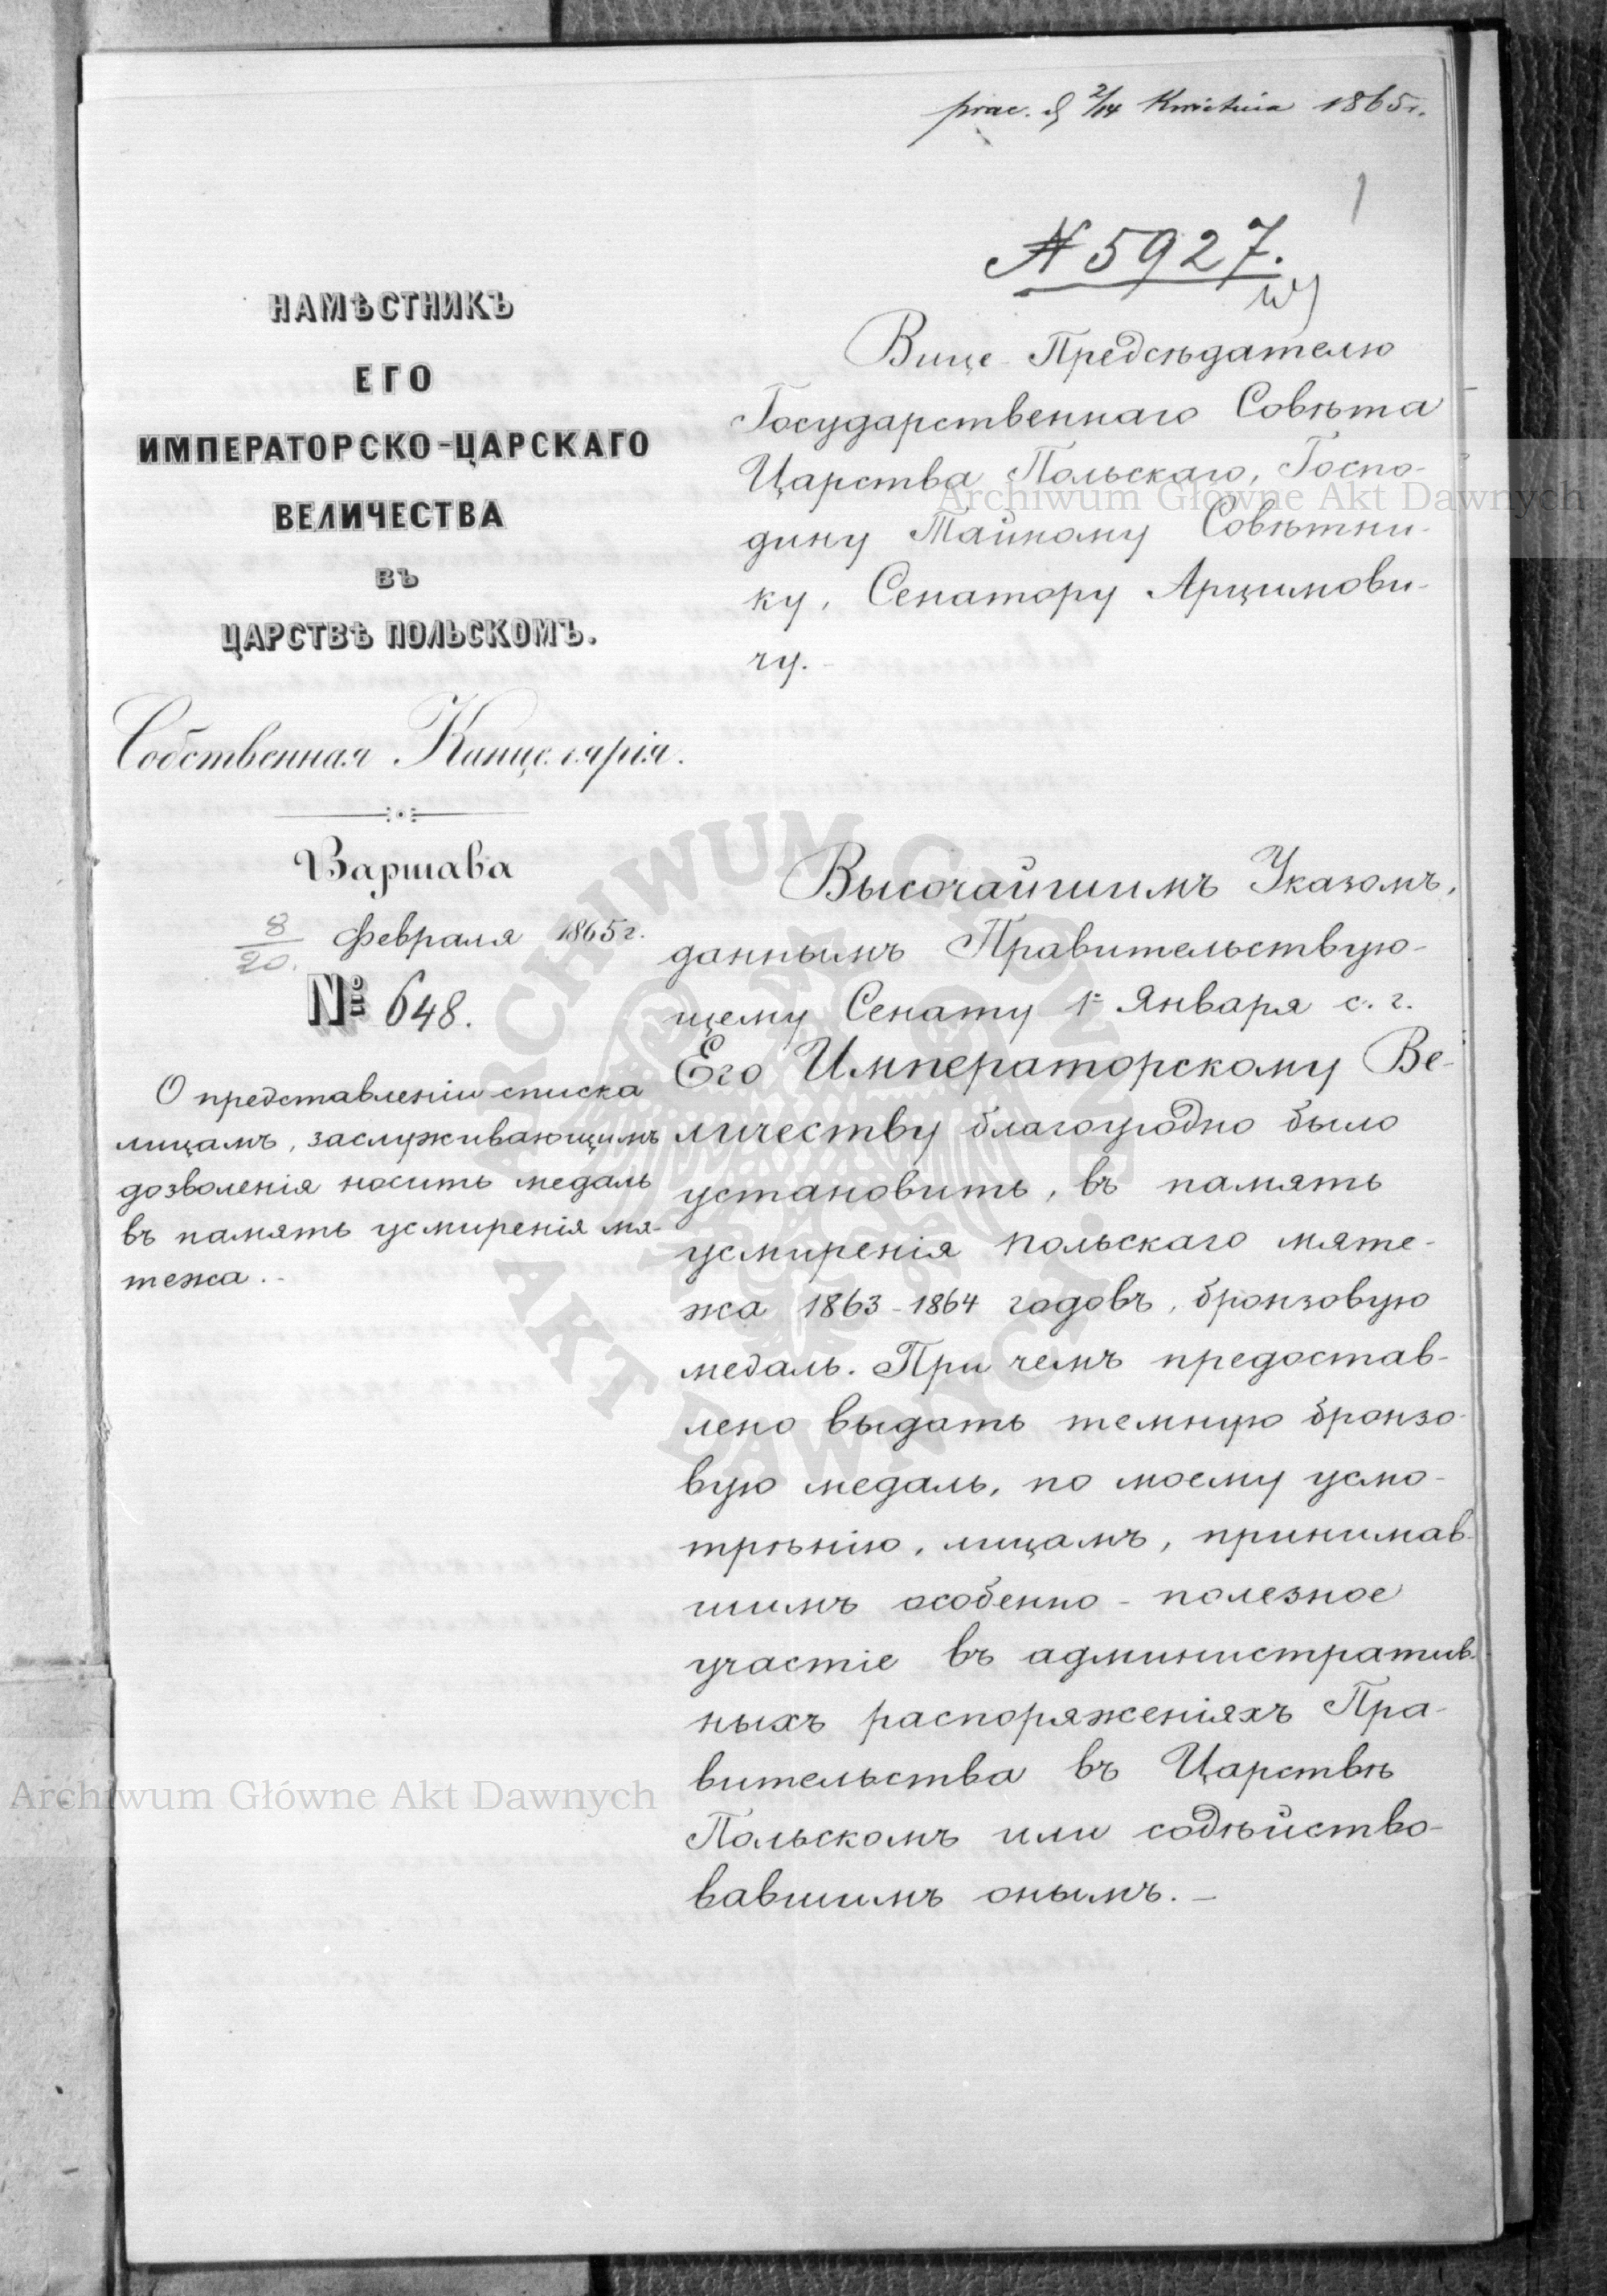 prac. d 2/14 Kwietnia 1865 r.
1
№ 5927.
НАМѢСТНИКЪ
ЕГО
ИМПЕРАТОРСКО-ЦАРСКАГО
ВЕЛИЧЕСТВА
ВЪ
ЦАРСТВѢ ПОЛЬСКОМЪ.
Собственная Канцелярія.
Варшава
8/20. Февраля 1865 г.
№ 648.
О представленіи списка
лицамъ, заслуживающимъ
дозволенія носить медаль
въ память усмиренія мя-
тежа.-
Вице-Предсѣдателю
Государственнаго Совѣта
Царства Польскаго, Госпо-
дину Тайному Совѣтни-
ку, Сенатору Арцимови-
чу.-
Высочайшимъ Указомъ,
даннымъ Правительствую-
щему Сенату 1го Января с. г.
Его Императорскому Ве-
личеству благоугодно было
установить, въ память
усмиренія польскаго мяте-
жа 1863-1864 годовъ, бронзовую
медаль. При чемъ предостав-
лено выдать темную бронзо-
вую медаль, по моему усмо-
трѣнію, лицамъ, принимав-
шимъ особенно-полезное
участіе въ административ-
ныхъ распоряженіяхъ Пра-
вительства въ Царствѣ
Польскомъ или содѣйство-
вавшимъ онымъ.-
Archiwum Główne Akt Dawnych
ARCHIWUM GŁÓWNE AKT DAWNYCH
Archiwum Główne Akt Dawnych